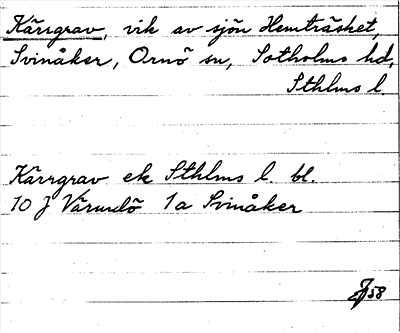 Kärrgrav, vik av sjön Hemträsket,
Svinåker, Ornö sn, Sotholms hd,
Sthlms l.
Kärrgrav ek Sthlms l. bl.
10 J 1a Svinåker
58